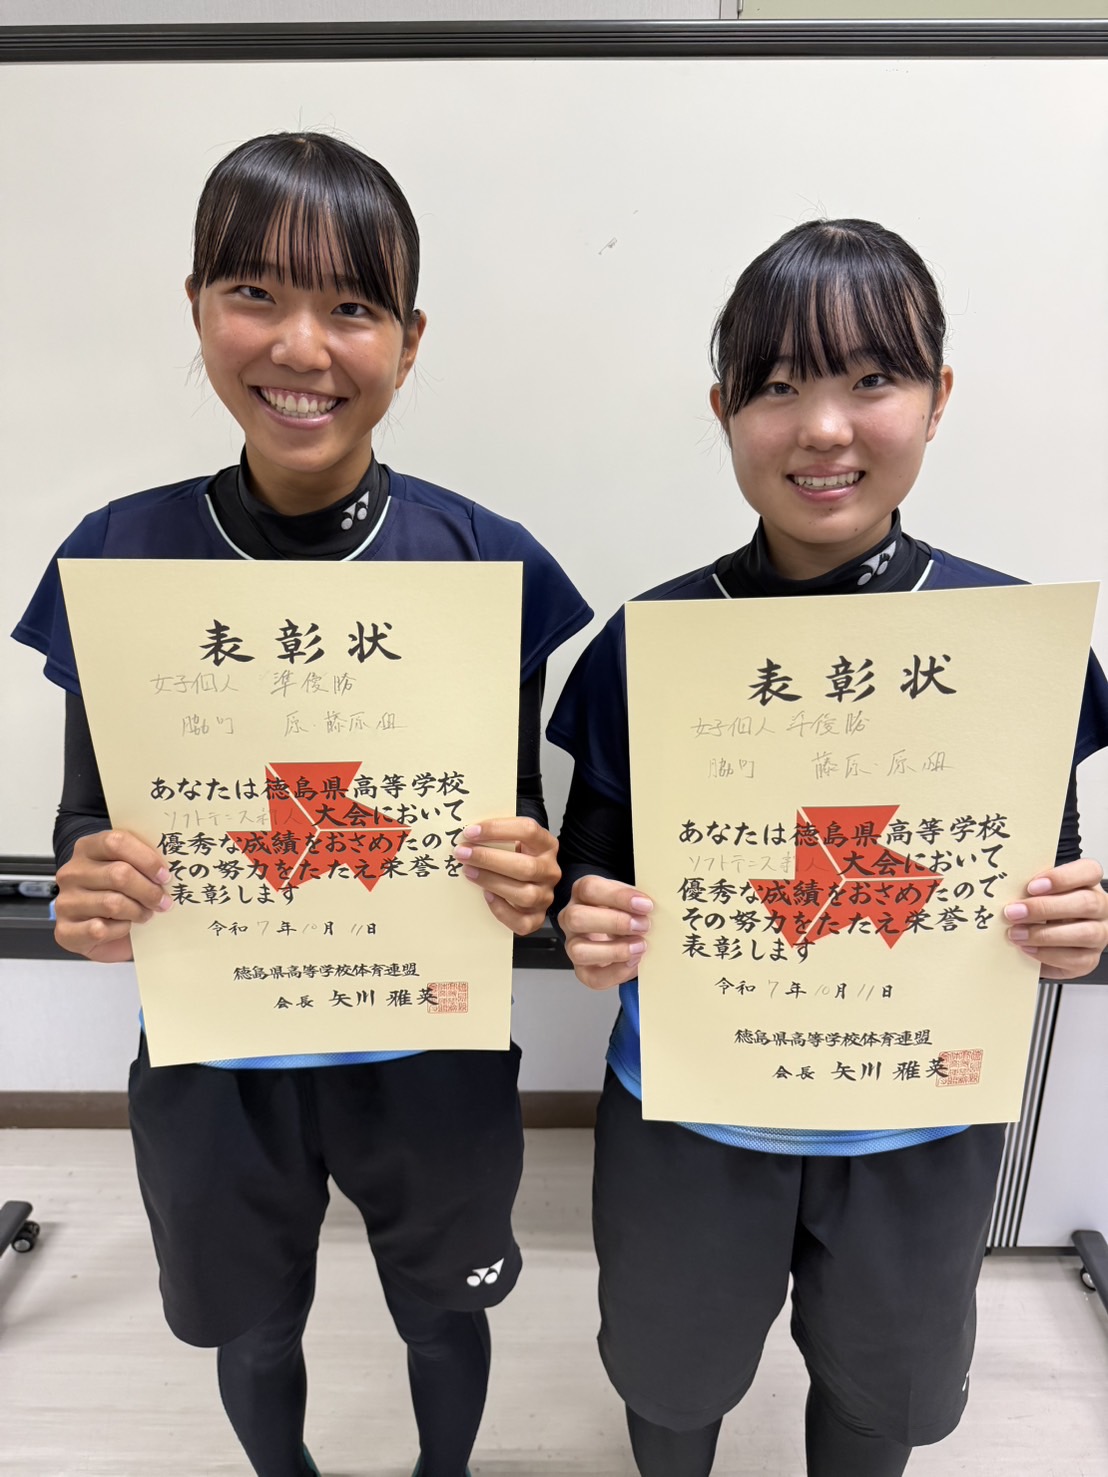 表彰状
女子個人 準優勝
脇町 原・藤原組
あなたは徳島県高等学校
ソフトテニス新人大会において
優秀な成績をおさめたので
その努力をたたえ栄誉を
表彰します
令和7年10月11日
徳島県高等学校体育連盟
会長 矢川雅英
表彰状
女子個人 準優勝
脇町 藤原・原組
あなたは徳島県高等学校
ソフトテニス新人大会において
優秀な成績をおさめたので
その努力をたたえ栄誉を
表彰します
令和7年10月11日
徳島県高等学校体育連盟
会長 矢川雅英